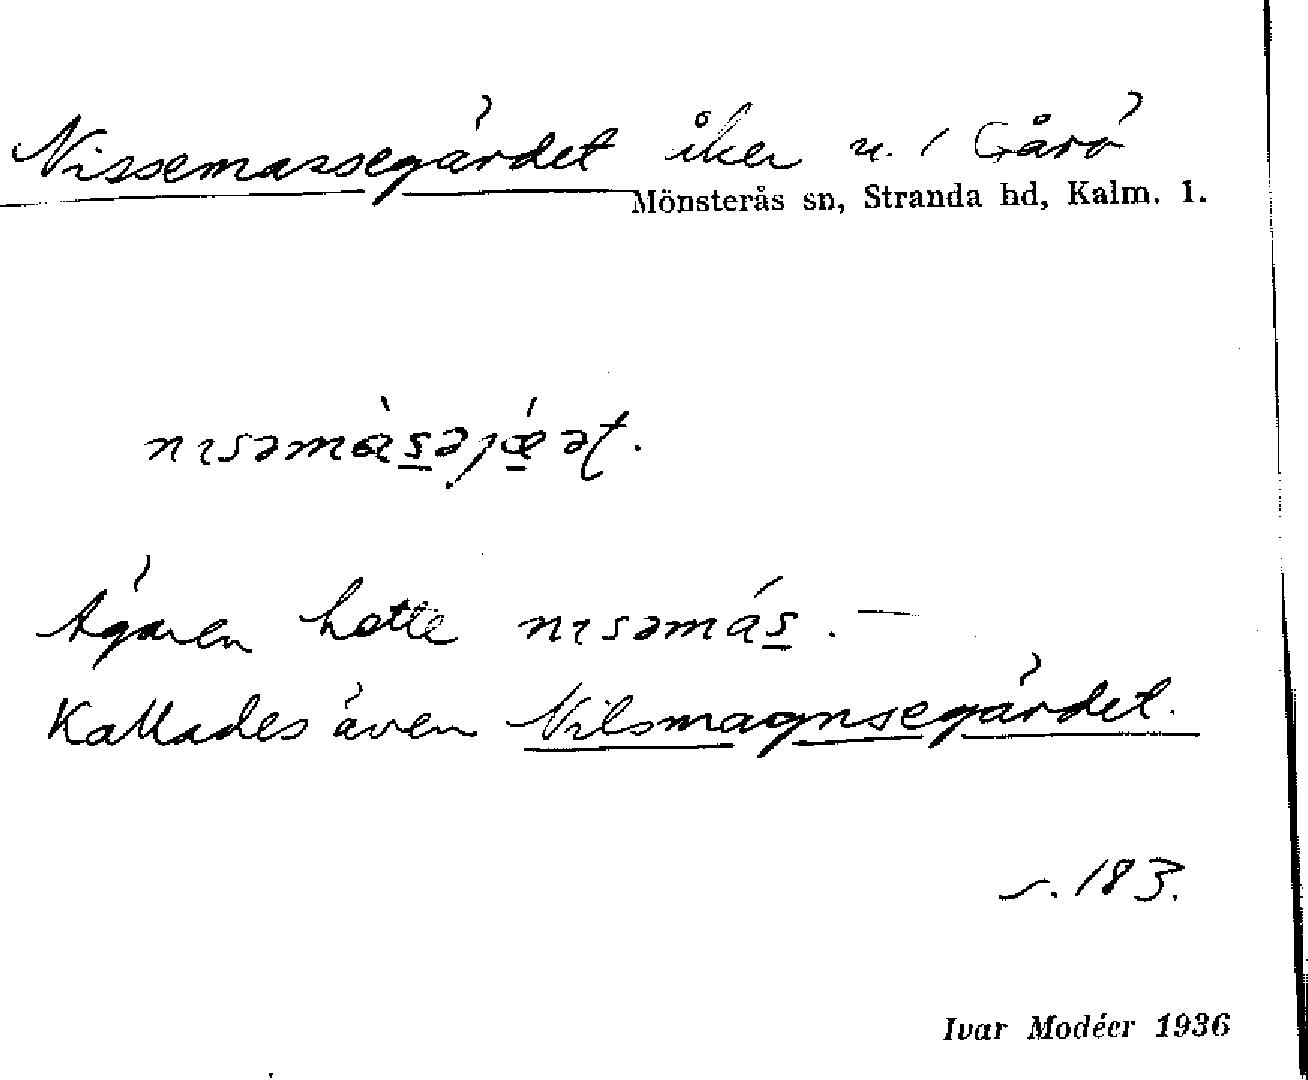 Nissemassegärdet åker u. / Gårö
Mönsterås sn, Stranda hd, Kalm. l.
Ägaren hette
Kallades även Nilsmagnsegärdet.
s. 183.
Ivar Modéer 1936